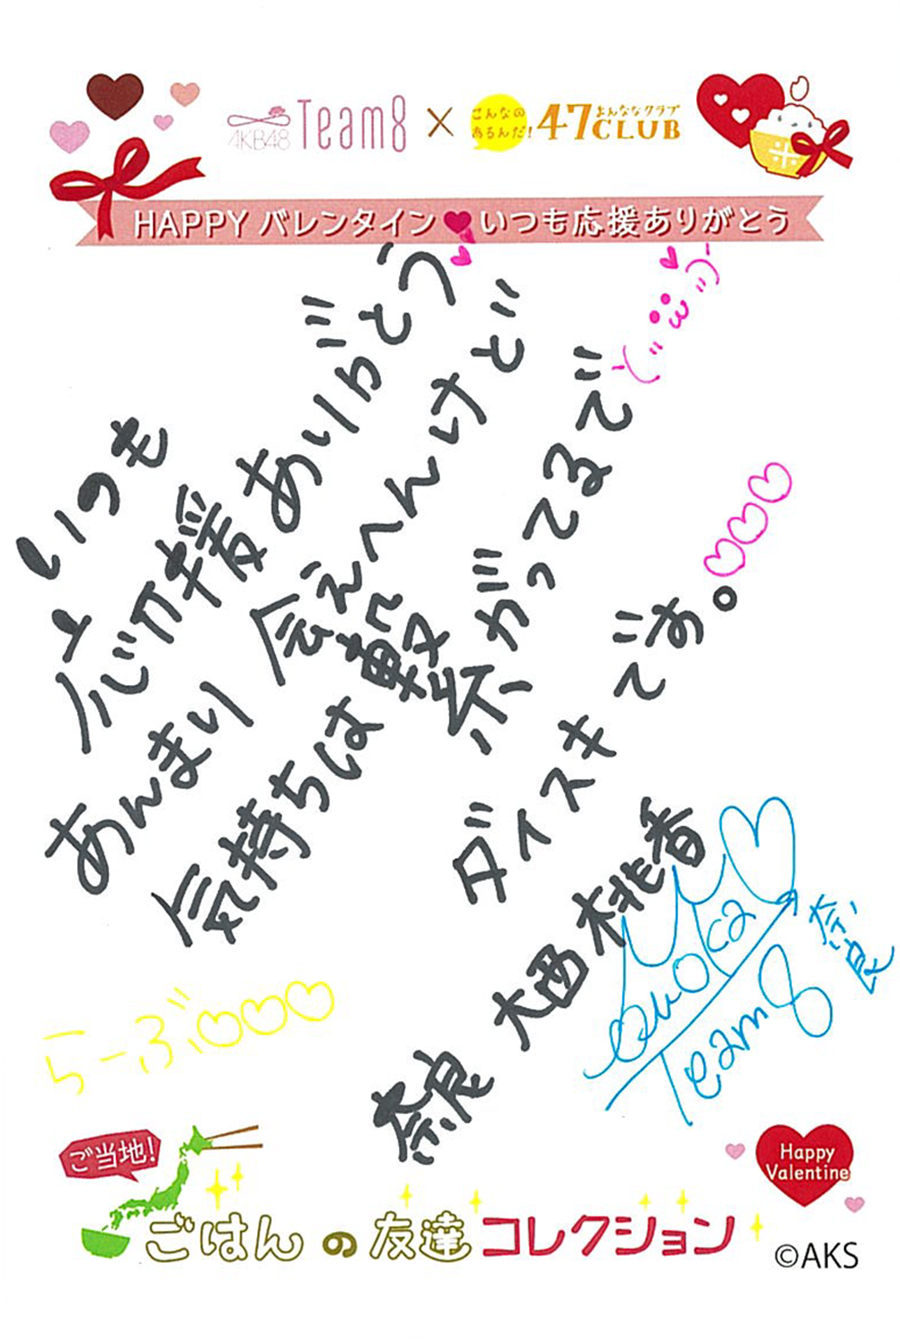 AKB48 Team8 × こんなのあるんだ! 47CLUB よんななクラブ
HAPPY バレンタイン♥いつも応援ありがとう
いつも
応援ありがとう
あんまり会えへんけど
気持ちは繋がってるで
ダイスキでお。
奈良 大西桃香
らーぶ♡♡♡
Team8
奈良
ご当地!
ごはんの友達コレクション
Happy
Valentine
©AKS